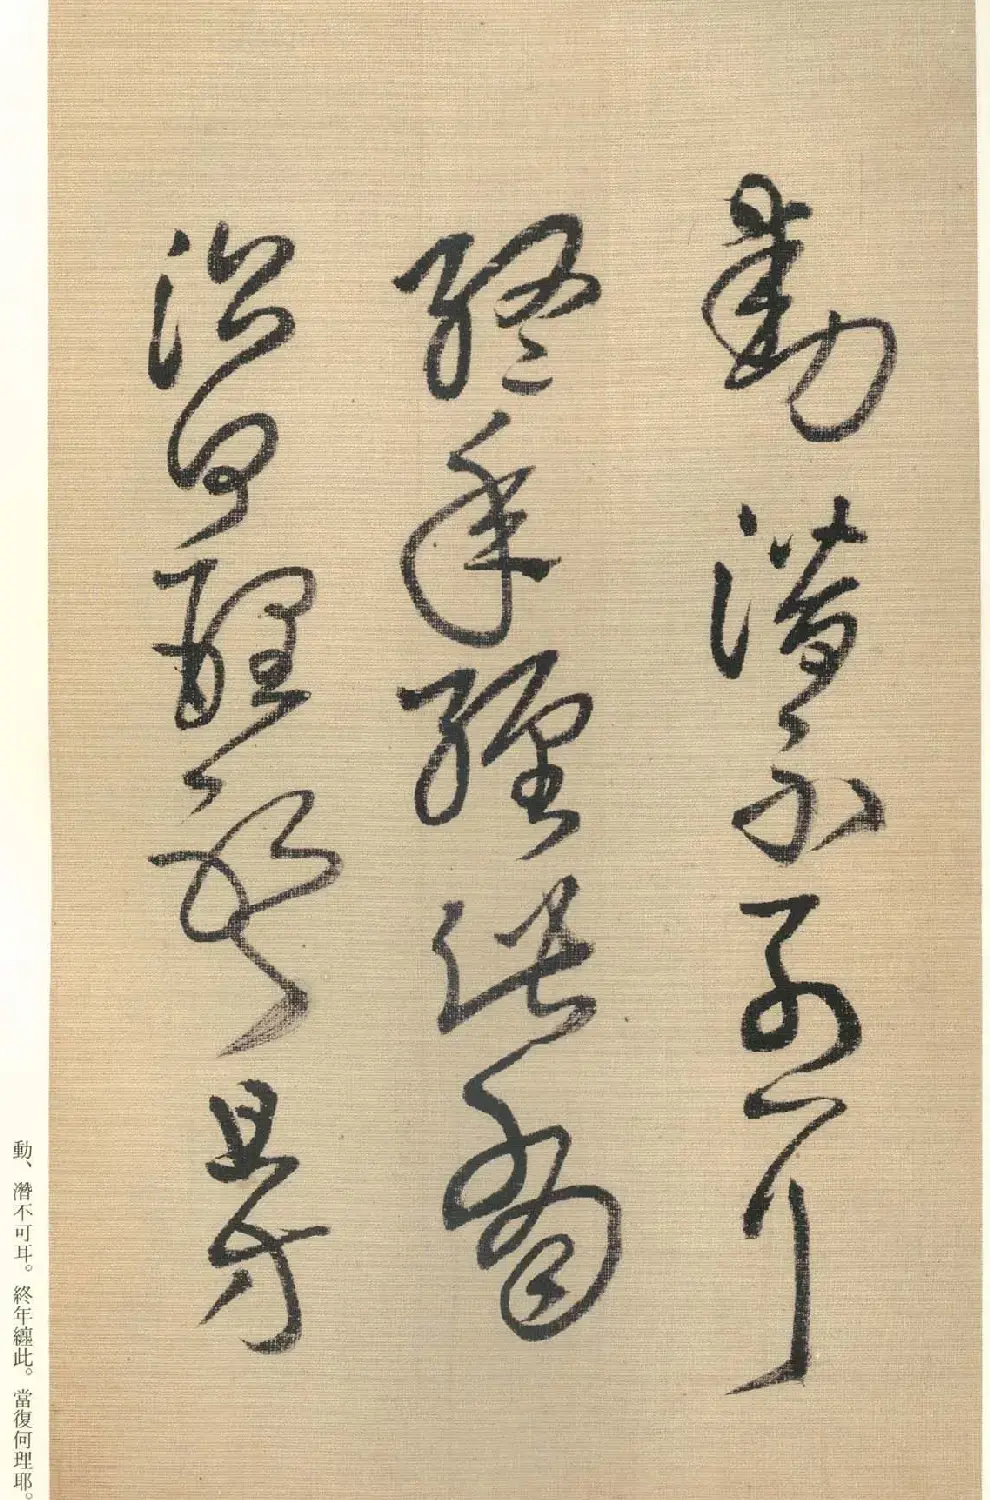 動潛不可耳
終年纏此當
復何理耶且方
動、潛不可耳。終年纏此。當復何理耶。